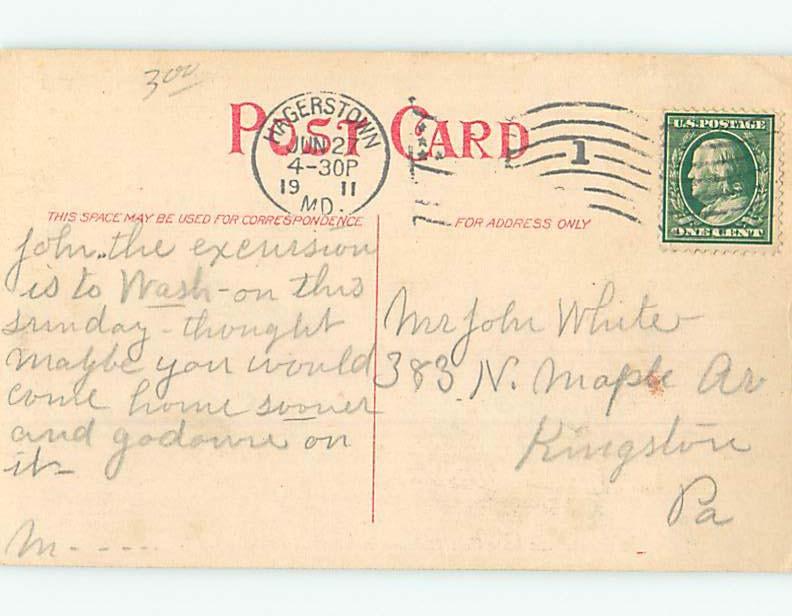 3 00
POST CARD
HAGERSTOWN
JUN 27
4-30P
19 11
MD.
1
U.S.POSTAGE
ONE CENT
THIS SPACE MAY BE USED FOR CORRESPONDENCE
FOR ADDRESS ONLY
John.. the excursion
is to Wash - on this
Sunday - thought
maybe you would
come home sooner
and godown on
it -
M - - - -
Mr John White
383 N. Maple Av
Kingston
Pa